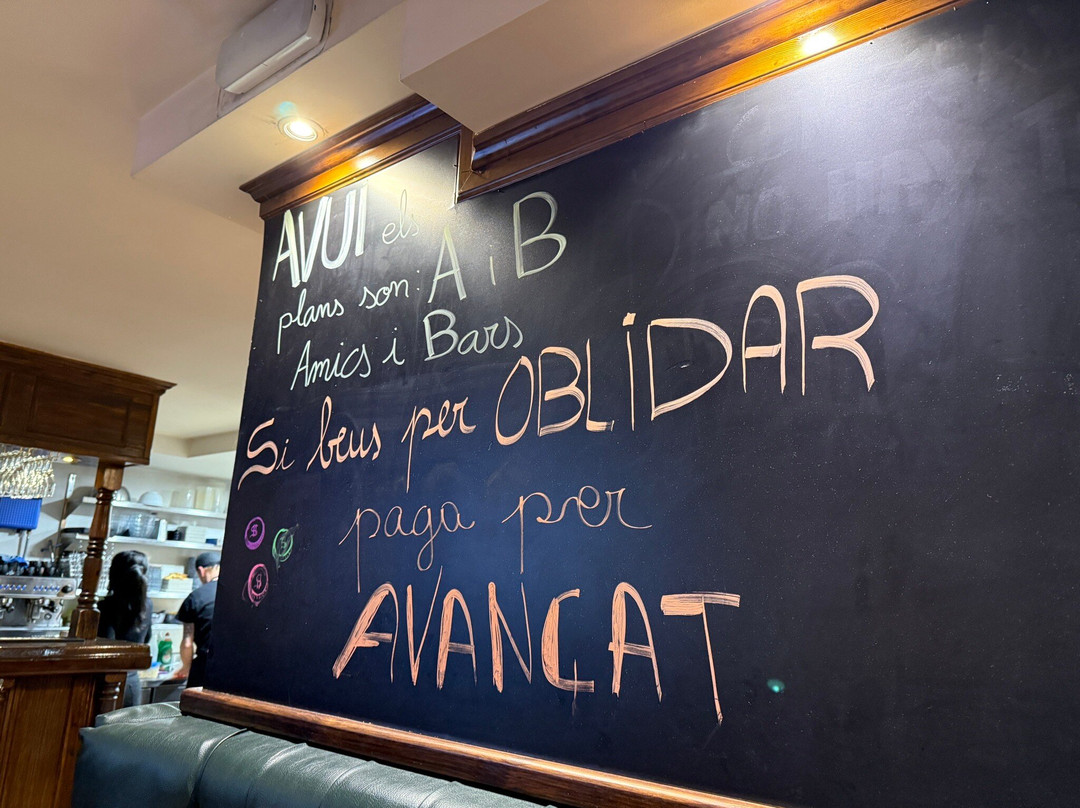 AVUI els
plans son: A i B
Amics i Bars
Si beus per OBLIDAR
paga per
AVANÇAT